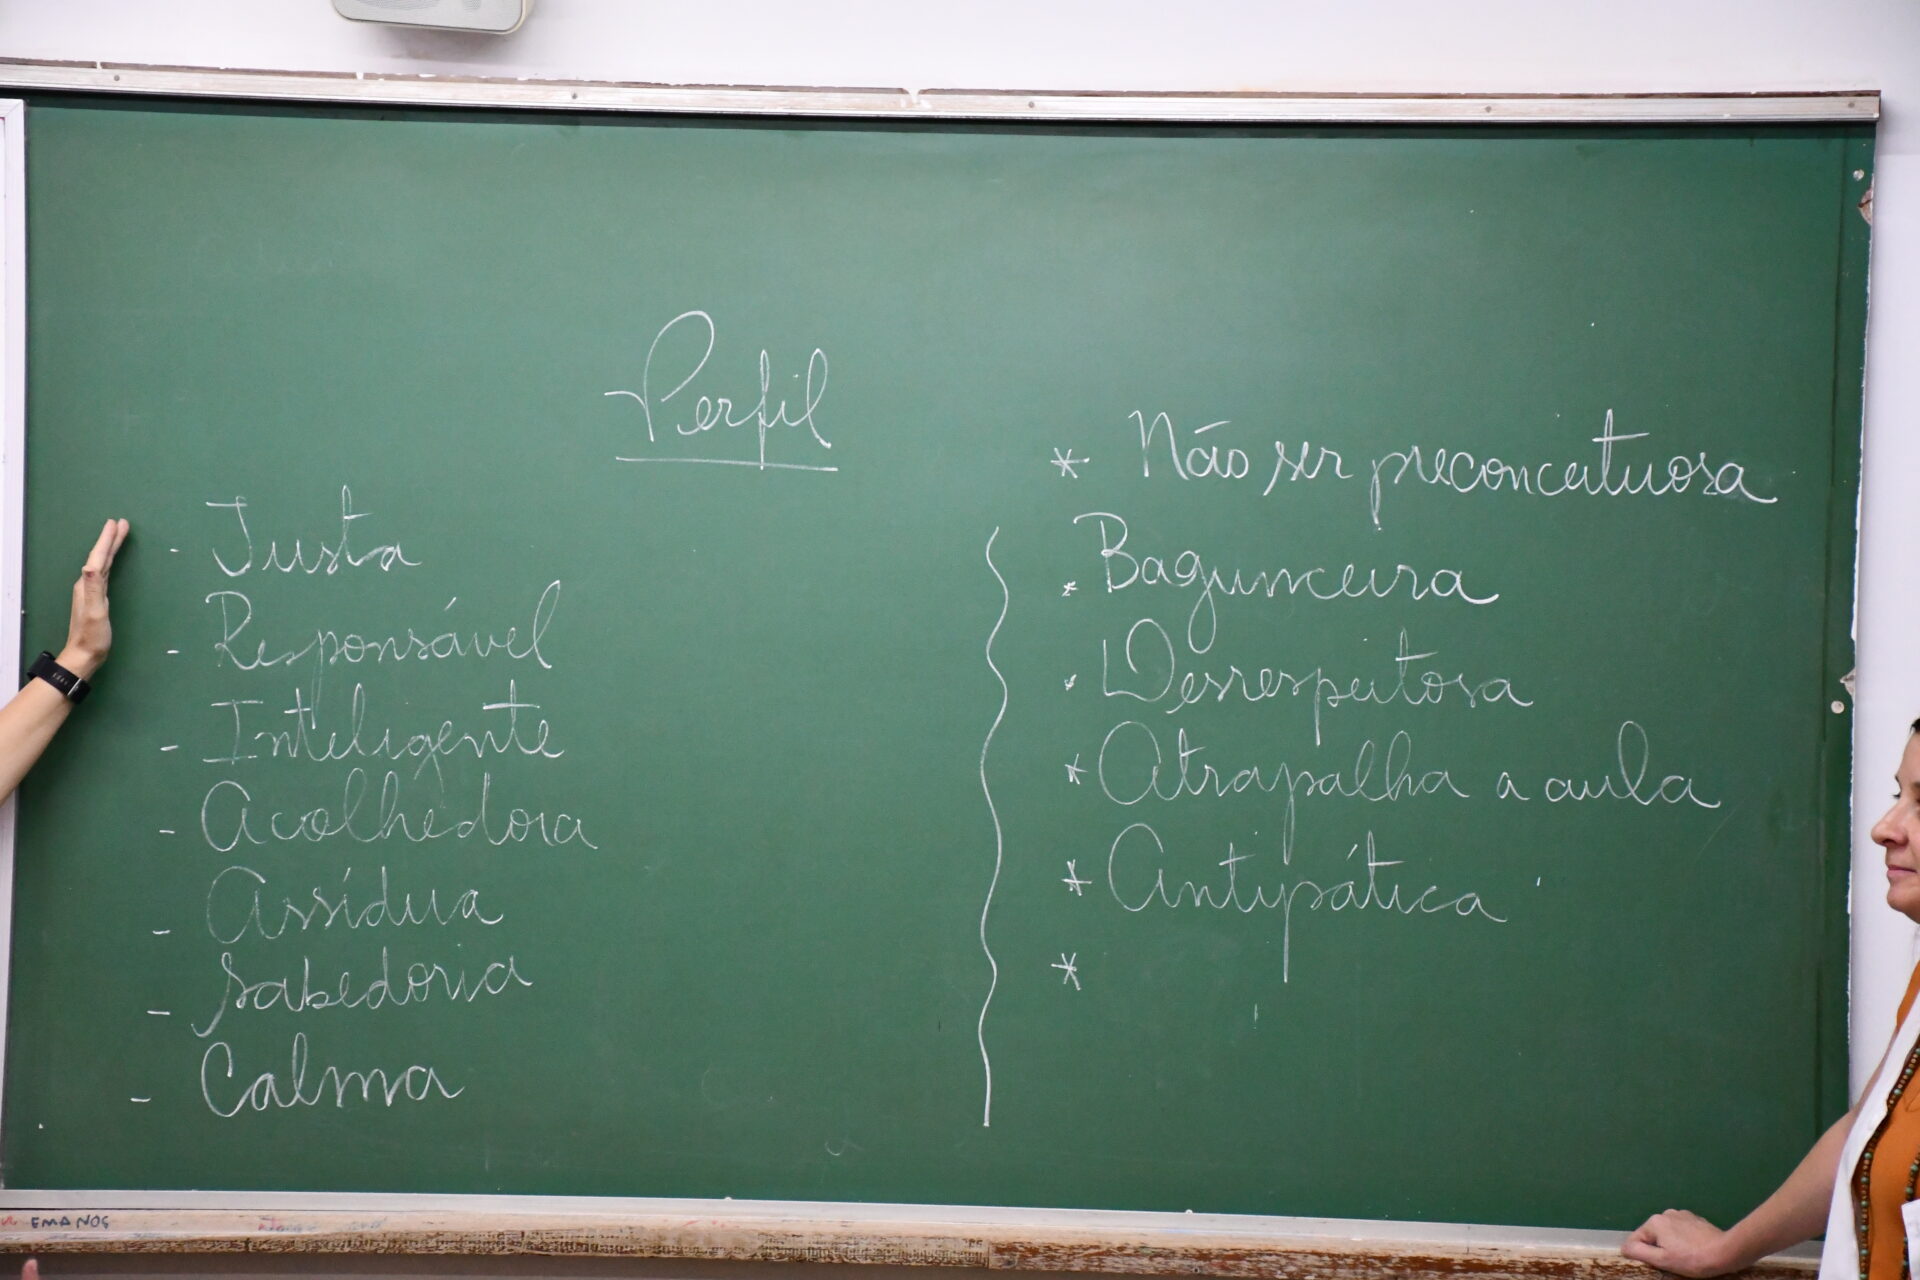 Perfil
- Justa
- Responsável
- Inteligente
- Acolhedora
- Assídua
- Sabedoria
- Calma
* Não ser preconceituosa
* Bagunceira
* Desrespeitosa
* Atrapalha a aula
* Antipática
*
EMANOS